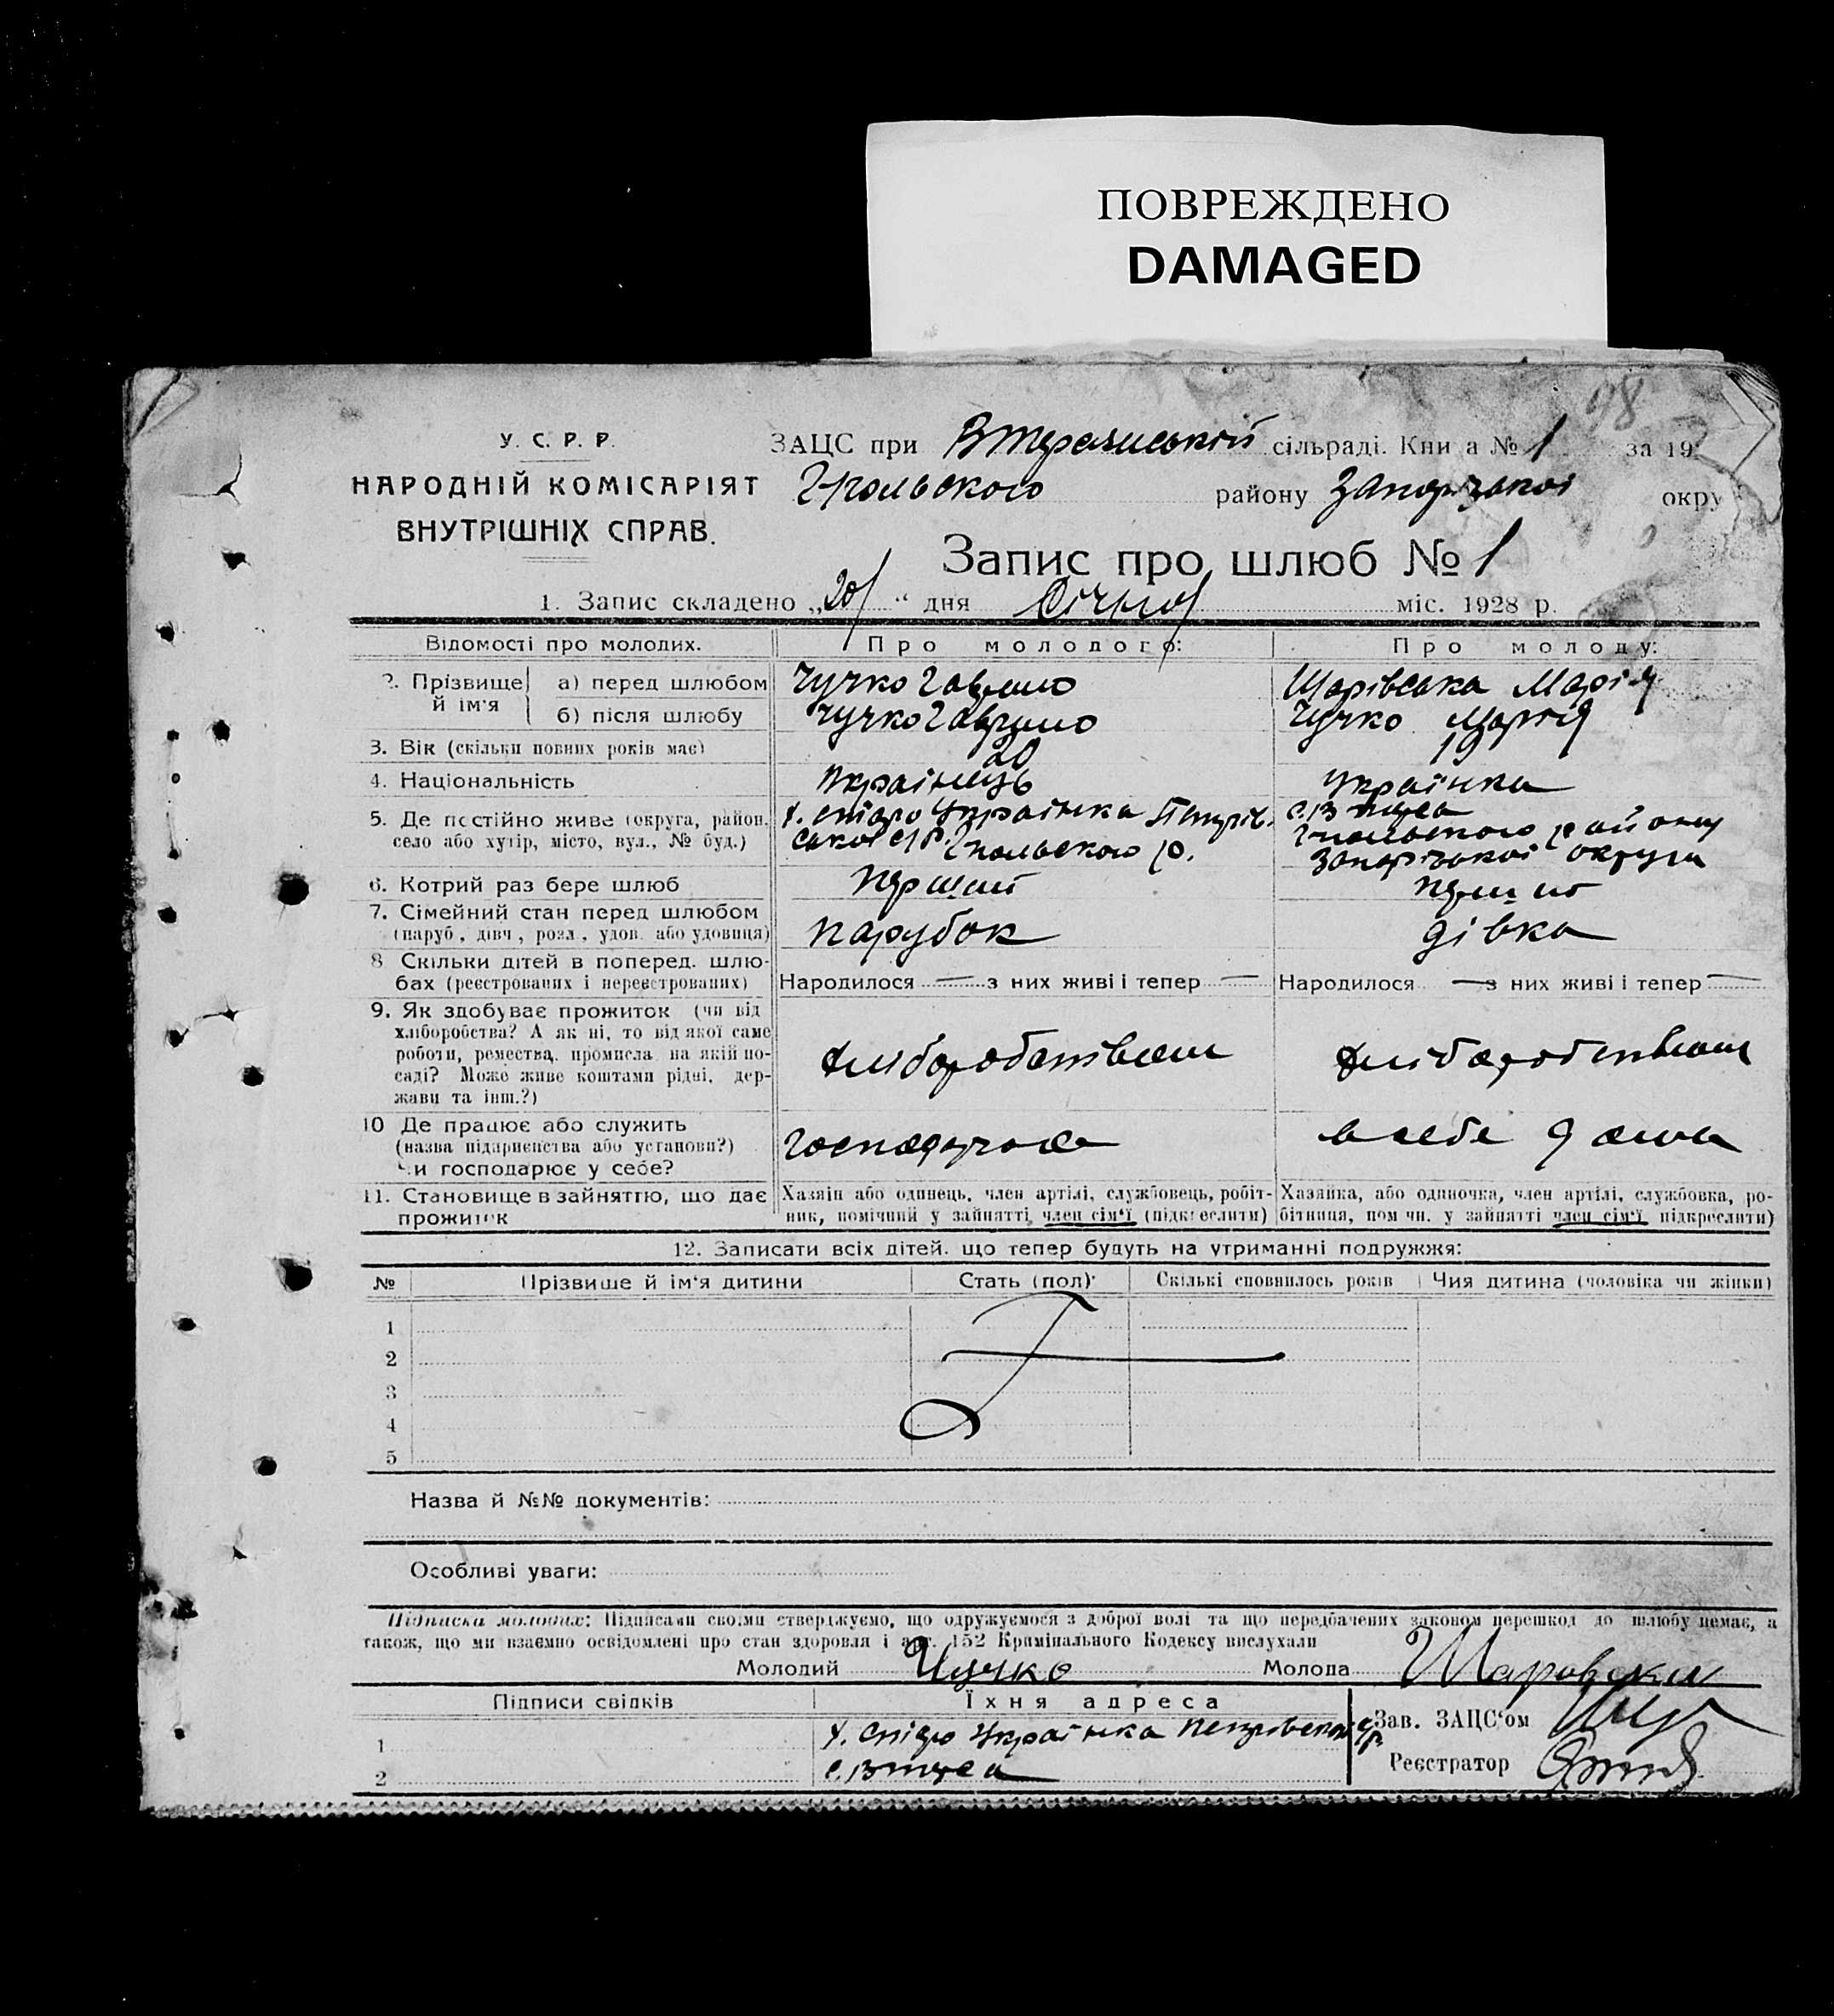 ПОВРЕЖДЕНО
DAMAGED
98
У. С. Р. Р.
НАРОДНІЙ КОМІСАРІЯТ
ВНУТРІШНІХ СПРАВ.
ЗАЦС при сільраді. Кни а № 1 за 19
району Запорізької окру
Запис про шлюб № 1
1. Запис складено „20“ дня Січня міс. 1928 р.
Відомості про молодих. Про молодого: Про молоду:
2. Прізвище й ім'я
а) перед шлюбом Чучко Гаврило Шарівська Марія
б) після шлюбу Чучко Гаврило Чучко Марія
3. Вік (скільки повних років має) 20 19
4. Національність Українець Українка
5. Де постійно живе (округа, район, село або хутір, місто, вул., № буд.)
х. Україінка
с. району
Запорізької округи
6. Котрий раз бере шлюб Перший перший
7. Сімейний стан перед шлюбом парубок дівка
(паруб., дівч., розл., удов. або удовиця)
8 Скільки дітей в поперед. шлюбах (реєстрованих і нереєстрованих) Народилося — з них живі і тепер — Народилося — з них живі і тепер —
9. Як здобуває прожиток (чи від
хліборобства? А як ні, то від якої саме
роботи, ремества, промисла на якій по-
саді? Може живе коштами рідні, дер-
жави та інш.?)
хліборобством хліборобством
10 Де працює або служить
(назва підприємства або установи?)
чи господарює у себе?
в себе дома
11. Становище в зайняттю, що дає
прожиток
Хазяїн або одинець, член артілі, службовець, робіт-
ник, помічний у зайнятті, член сім'ї (підкреслити)
Хазяйка, або одиночка, член артілі, службовка, ро-
бітниця, помічн. у зайнятті член сім'ї підкреслити)
12. Записати всіх дітей, що тепер будуть на утриманні подружжя:
№ Прізвище й ім'я дитини Стать (пол) Скількі сповнилось років Чия дитина (чоловіка чи жінки)
1
2
3
4
5
Назва й №№ документів:
Особливі уваги:
Підписка молодих: Підписами своїми стверджуємо, що одружуємося з доброї волі та що передбачених законом перешкод до шлюбу немає, а
також, що ми взаємно освідомлені про стан здоровля і арт. 152 Кримінального Кодексу вислухали
Молодий Чучко Молода Шаровска
Підписи свідків Їхня адреса
1 х. Україінка
2
Зав. ЗАЦС'ом
Реєстратор